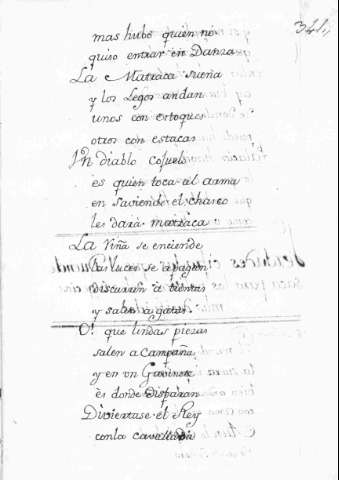 341,,
mas hubo quien no
quiso entrar en Danza
La Matraca sueña
y los Legos andan
unos con estoques
otros con estacas
Un diablo cojuelo
es quien toca al arma
en saviendo el chasco
les dará matraca
La Viña se enciende
las luces se apagan
discurran à tientas
y salen à gatas.
O! que lindas piezas
salen a Campaña
y en un Gavinete
es donde disparan
Diviertase el Rey
con la cavallada